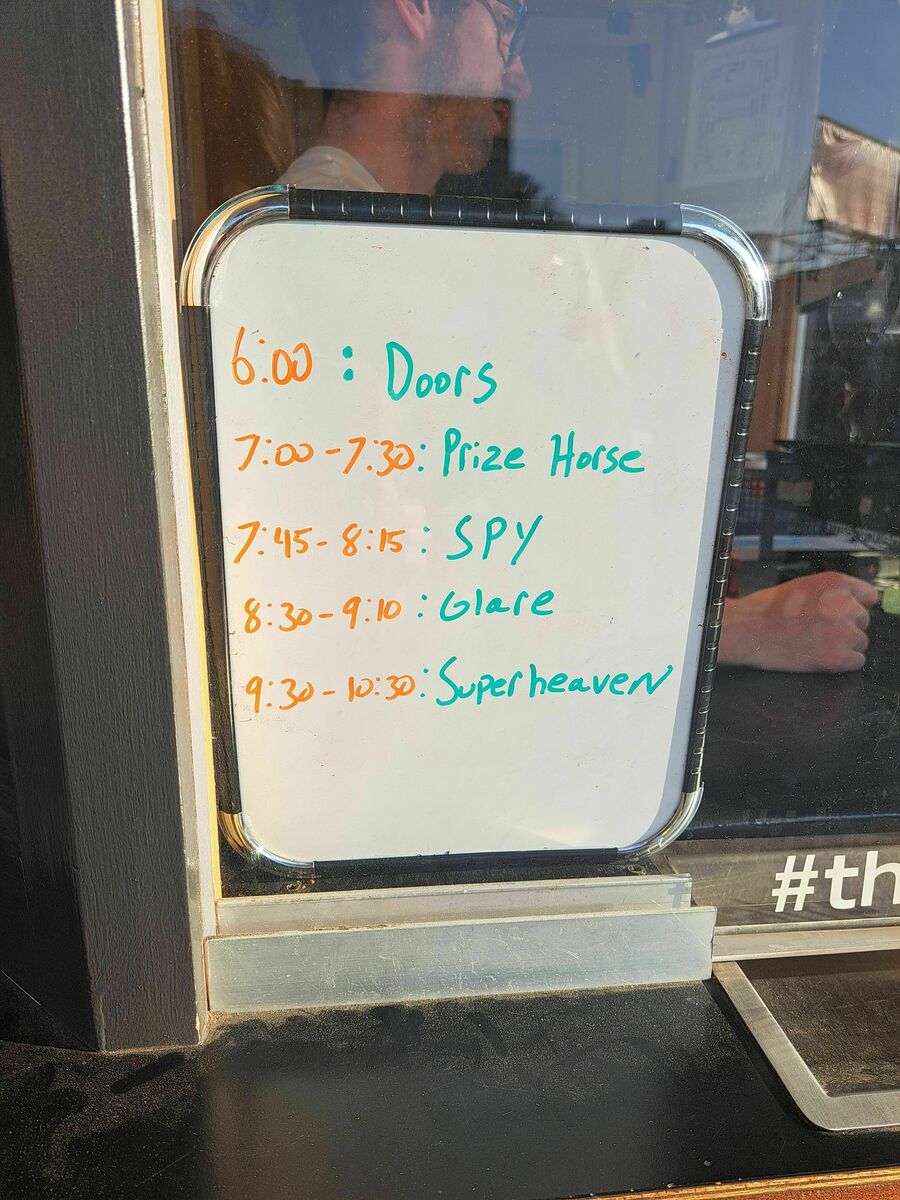 6:00 : Doors
7:00 - 7:30: Prize Horse
7:45 - 8:15 : SPY
8:30 - 9:10 : Glare
9:30 - 10:30: Superheaven
#th